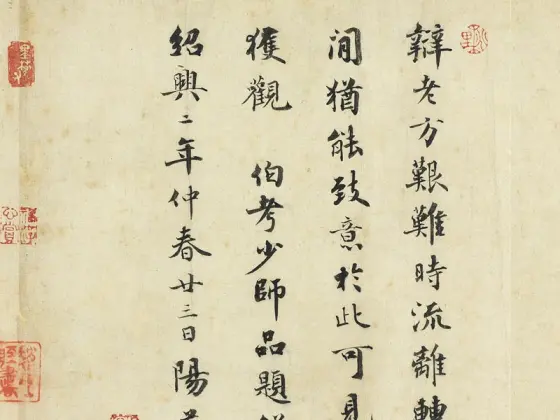 辯老方艱難時流離轉
間猶能致意於此可見
獲觀 伯考少師品題
紹興二年仲春廿三日陽